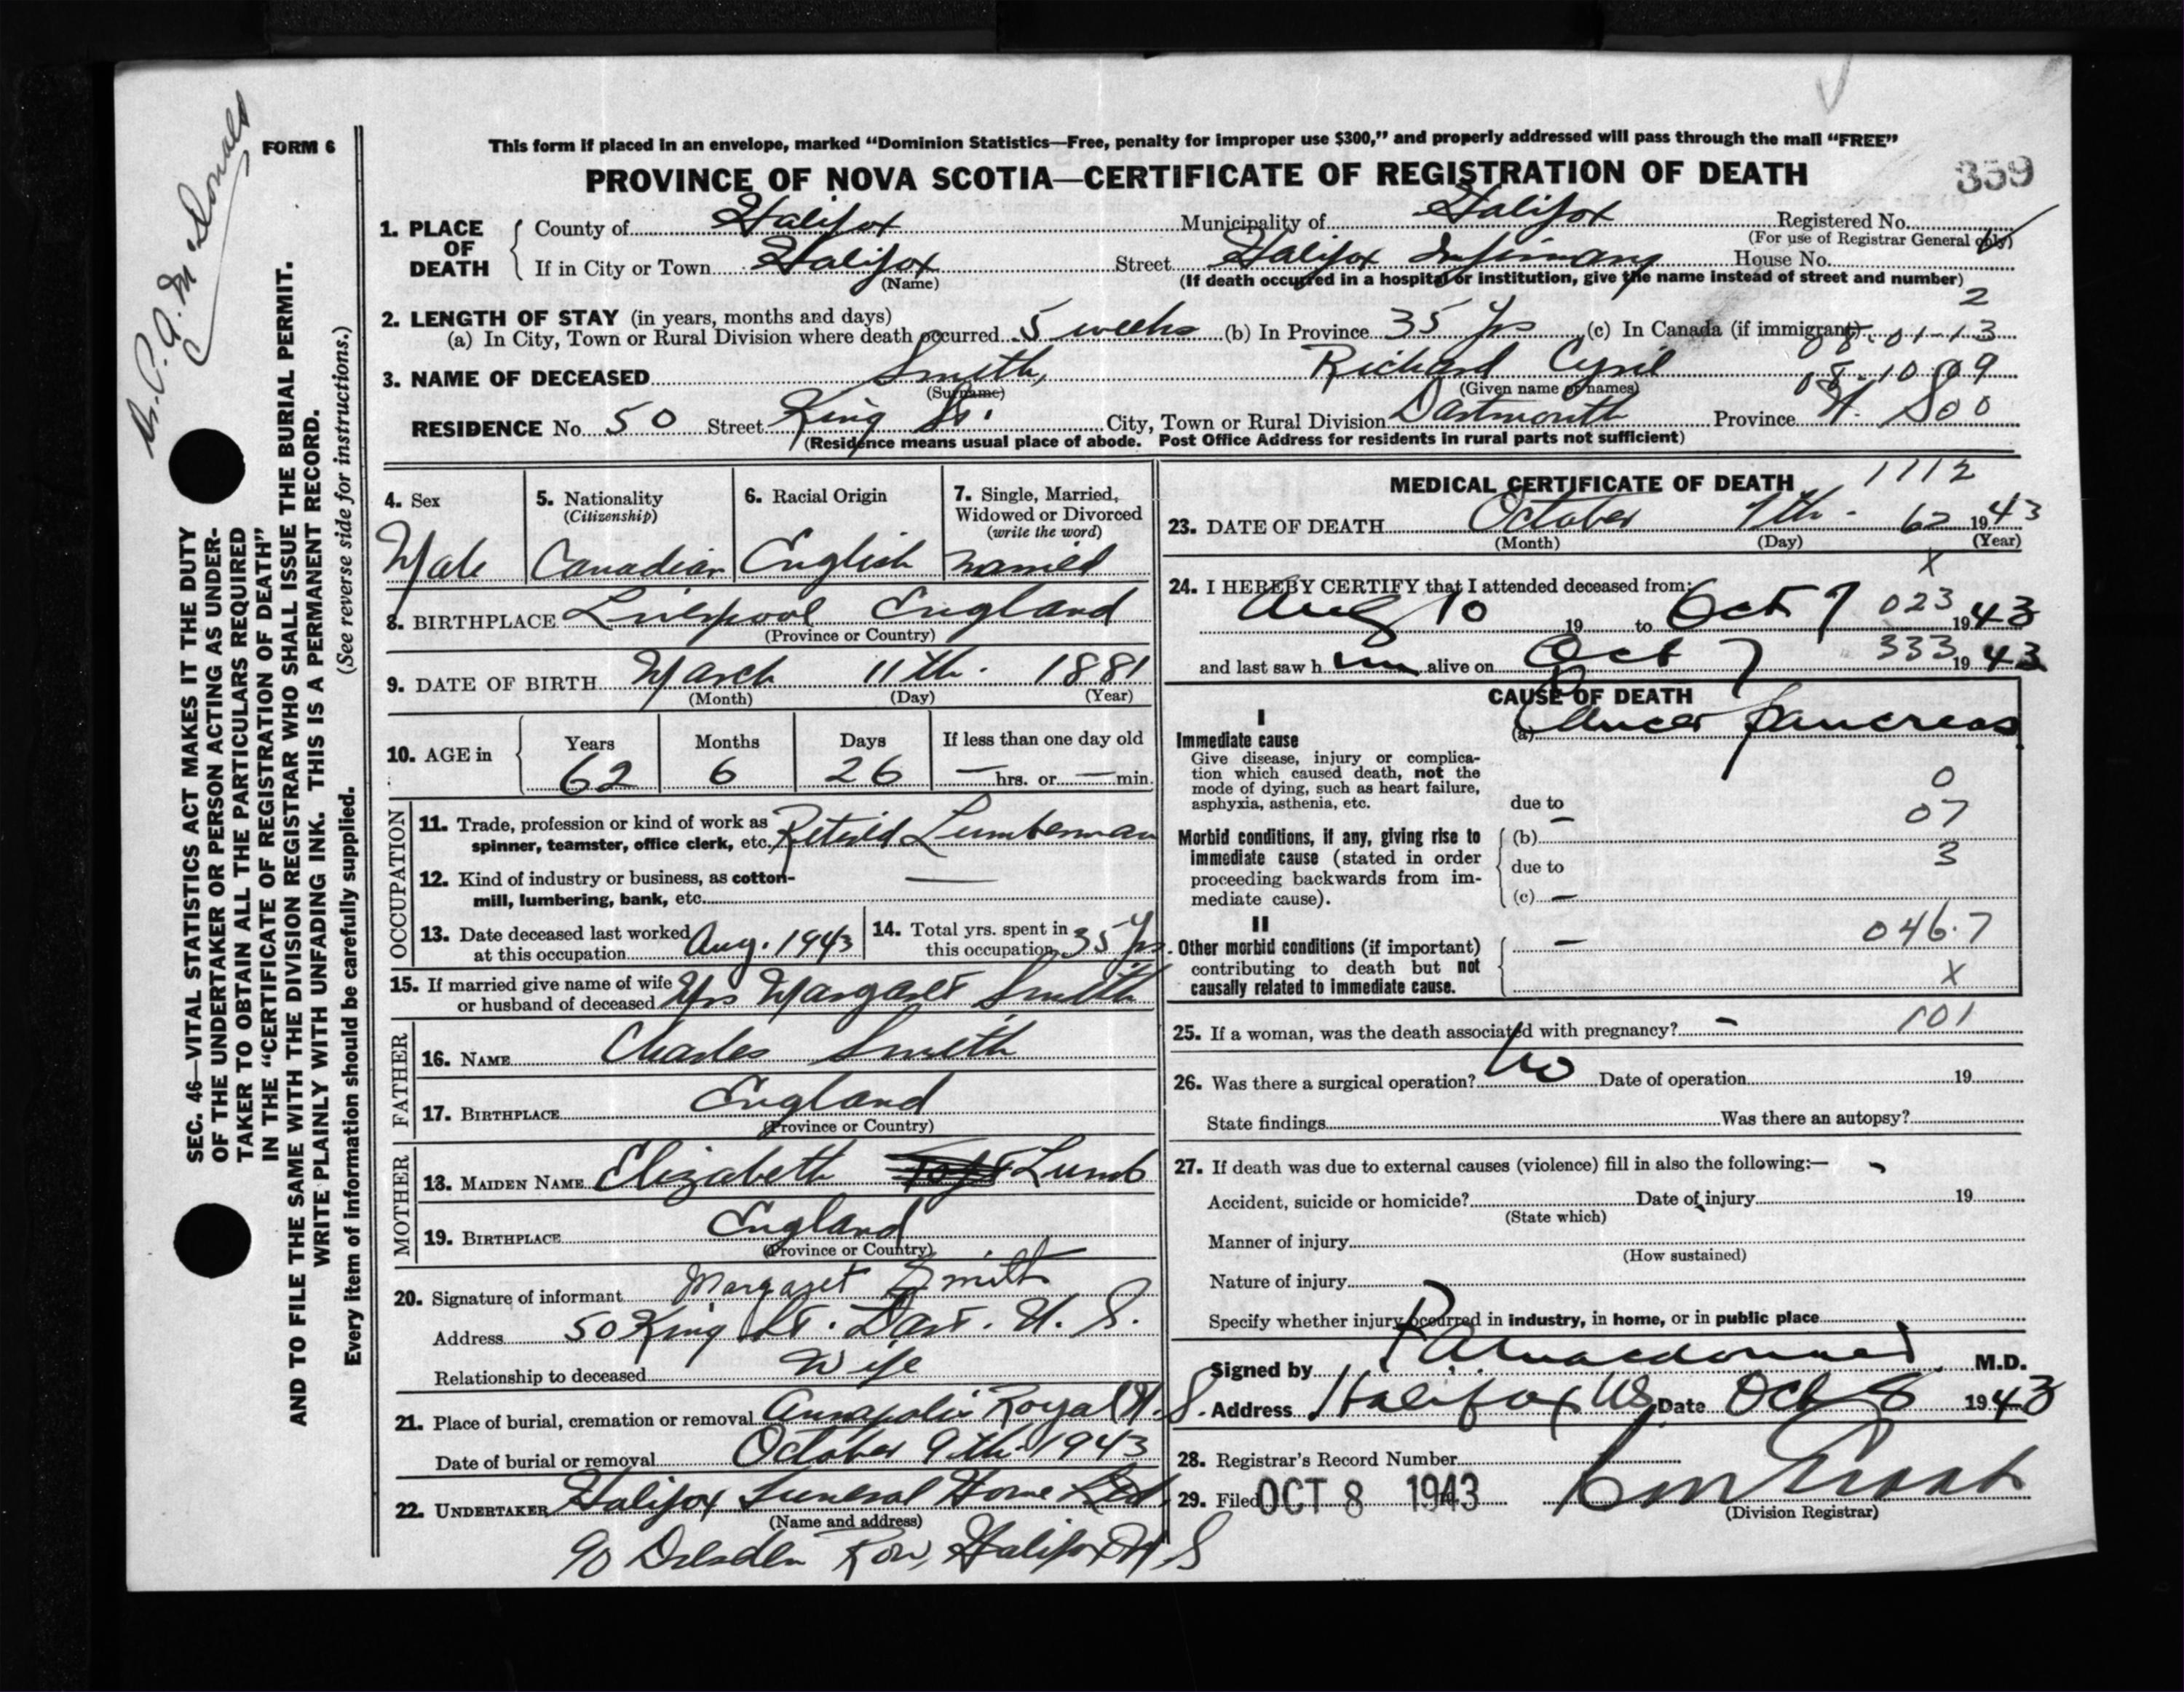 This form if placed in an envelope, marked “Dominion Statistics—Free, penalty for improper use $300,” and properly addressed will pass through the mail “FREE”
FORM 6
PROVINCE OF NOVA SCOTIA—CERTIFICATE OF REGISTRATION OF DEATH
359
1. PLACE OF DEATH
County of Halifax Municipality of Halifax Registered No.
(For use of Registrar General only)
If in City or Town Halifax Street Halifax Infirmary House No.
(Name) (If death occurred in a hospital or institution, give the name instead of street and number)
2
2. LENGTH OF STAY (in years, months and days)
(a) In City, Town or Rural Division where death occurred 5 weeks (b) In Province 35 yrs (c) In Canada (if immigrant)
08-01-13
3. NAME OF DECEASED Smith, Richard Cyril 08-10-09
(Surname) (Given name or names)
RESIDENCE No. 50 Street King St. City, Town or Rural Division Dartmouth Province N. S 00
(Residence means usual place of abode. Post Office Address for residents in rural parts not sufficient)
4. Sex
Male
5. Nationality
(Citizenship)
Canadian
6. Racial Origin
English
7. Single, Married,
Widowed or Divorced
(write the word)
married
8. BIRTHPLACE Liverpool England
(Province or Country)
9. DATE OF BIRTH March 11th. 1881
(Month) (Day) (Year)
10. AGE in Years Months Days If less than one day old
62 6 26 — hrs. or — min.
OCCUPATION
11. Trade, profession or kind of work as
spinner, teamster, office clerk, etc. Retired Lumberman
12. Kind of industry or business, as cotton-
mill, lumbering, bank, etc. —
13. Date deceased last worked
at this occupation Aug. 1943
14. Total yrs. spent in
this occupation 35 yrs.
15. If married give name of wife
or husband of deceased Mrs Margaret Smith
FATHER
16. NAME Charles Smith
17. BIRTHPLACE England
(Province or Country)
MOTHER
18. MAIDEN NAME Elizabeth Lumb
19. BIRTHPLACE England
(Province or Country)
20. Signature of informant Margaret Smith
Address 50 King St. Dart. N. S.
Relationship to deceased Wife
21. Place of burial, cremation or removal Annapolis Royal N. S.
Date of burial or removal October 9th. 1943
22. UNDERTAKER Halifax Funeral Home Ltd.
(Name and address)
90 Dresden Row, Halifax N. S
MEDICAL CERTIFICATE OF DEATH 1112
23. DATE OF DEATH October 7th. 62 1943
(Month) (Day) (Year)
X
24. I HEREBY CERTIFY that I attended deceased from:
Aug 10 19 to Oct 7 023 1943
and last saw h im alive on Oct 7 333 1943
CAUSE OF DEATH
I
Immediate cause
Give disease, injury or complica-
tion which caused death, not the
mode of dying, such as heart failure,
asphyxia, asthenia, etc.
(a) Cancer pancreas
0
due to —
07
Morbid conditions, if any, giving rise to
immediate cause (stated in order
proceeding backwards from im-
mediate cause).
(b)
3
due to
(c) —
II
Other morbid conditions (if important)
contributing to death but not
causally related to immediate cause.
— 046.7
X
25. If a woman, was the death associated with pregnancy? — 101
26. Was there a surgical operation? No Date of operation 19
State findings Was there an autopsy?
27. If death was due to external causes (violence) fill in also the following:—
Accident, suicide or homicide? Date of injury 19
(State which)
Manner of injury
(How sustained)
Nature of injury
Specify whether injury occurred in industry, in home, or in public place
Signed by P A Macdonald M.D.
Address Halifax NS Date Oct 8 1943
28. Registrar's Record Number
29. Filed OCT 8 1943
(Division Registrar)
Dr. P. A. McDonald
SEC. 46—VITAL STATISTICS ACT MAKES IT THE DUTY
OF THE UNDERTAKER OR PERSON ACTING AS UNDER-
TAKER TO OBTAIN ALL THE PARTICULARS REQUIRED
IN THE “CERTIFICATE OF REGISTRATION OF DEATH”
AND TO FILE THE SAME WITH THE DIVISION REGISTRAR WHO SHALL ISSUE THE BURIAL PERMIT.
WRITE PLAINLY WITH UNFADING INK. THIS IS A PERMANENT RECORD.
Every item of information should be carefully supplied. (See reverse side for instructions.)